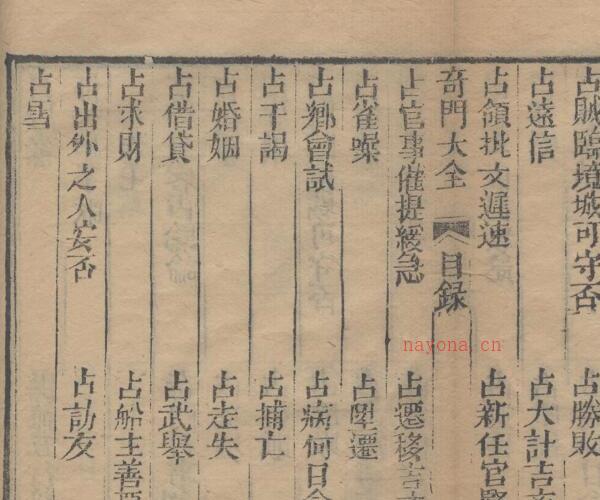 占賊臨境城可守否　占勝敗
占遠信　占大計吉
占領批文遲速　占新任官
奇門大全　目錄
占官事催提緩急　占遷移吉
占雀噪　占陞遷
占鄉會試　占病何日
占干謁　占捕亡
占婚姻　占走失
占借貸　占武舉
占求財　占船主善
占出外之人安否　占訪友
占雪
nayona.cn